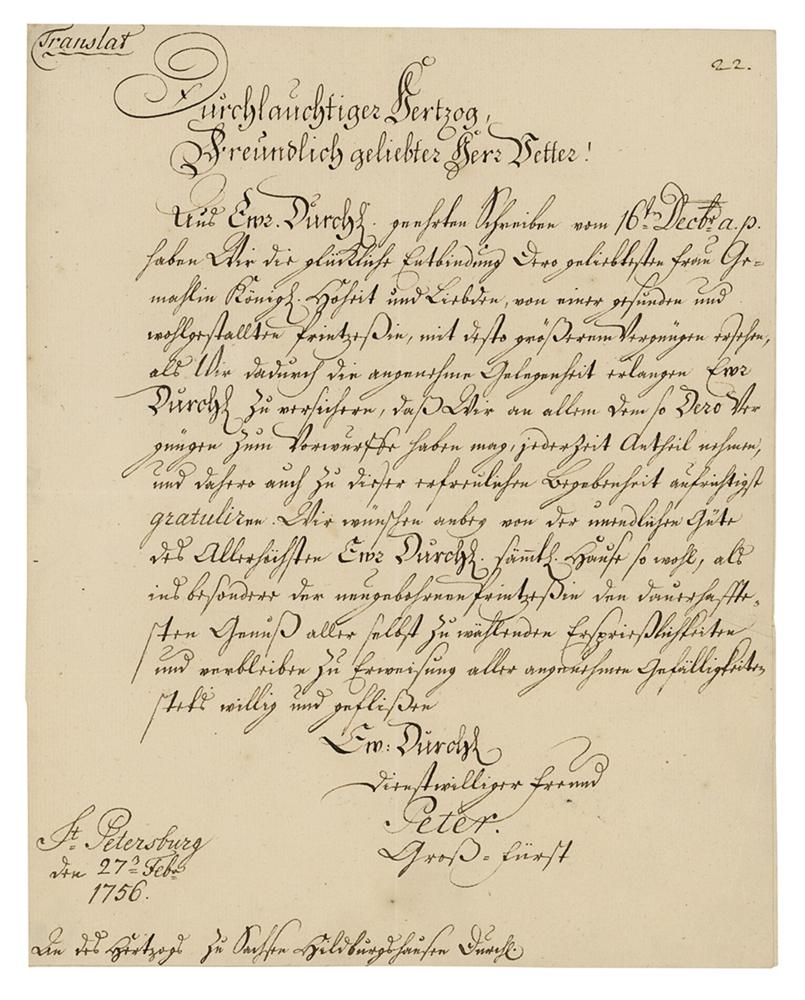 Translat
22.
Durchlauchtiger Hertzog,
Freundlich geliebter Herr Vetter!
Aus Ewr. Durchl. geehrten Schreiben vom 16ten Decbr. a. p.
haben Wir die glückliche Entbindung Dero geliebtesten Frau Ge=
mahlin Königl. Hoheit und Liebden, von einer gesunden und
wohlgestallten Printzeßin, mit desto größerem Vergnügen ersehen,
als Wir dadurch die angenehme Gelegenheit erlangen Ewr
Durchl zu versichern, daß Wir an allem dem so Dero Ver
gnügen zum Vorwurffe haben mag, jederzeit Antheil nehmen,
und dahero auch zu dieser erfreulichen Begebenheit aufrichtigst
gratuliren. Wir wünschen anbey von der unendlichen Güte
des Allerhöchsten Ewr Durchl. sämtl. Hause so wohl, als
ins besondere der neugebohrnen Printzeßin den dauerhaffte=
sten Genuß aller selbst zu wählenden Ersprießlichkeiten
und verbleiben zu Erweisung aller angenehmen Gefälligkeiten
stets willig und geflißen
Ew: Durchl
Dienstwilliger Freund
Peter.
Groß=Fürst
St. Petersburg
den 27t Febr
1756.
An des Hertzogs zu Sachsen Hildburgshausen Durchl.